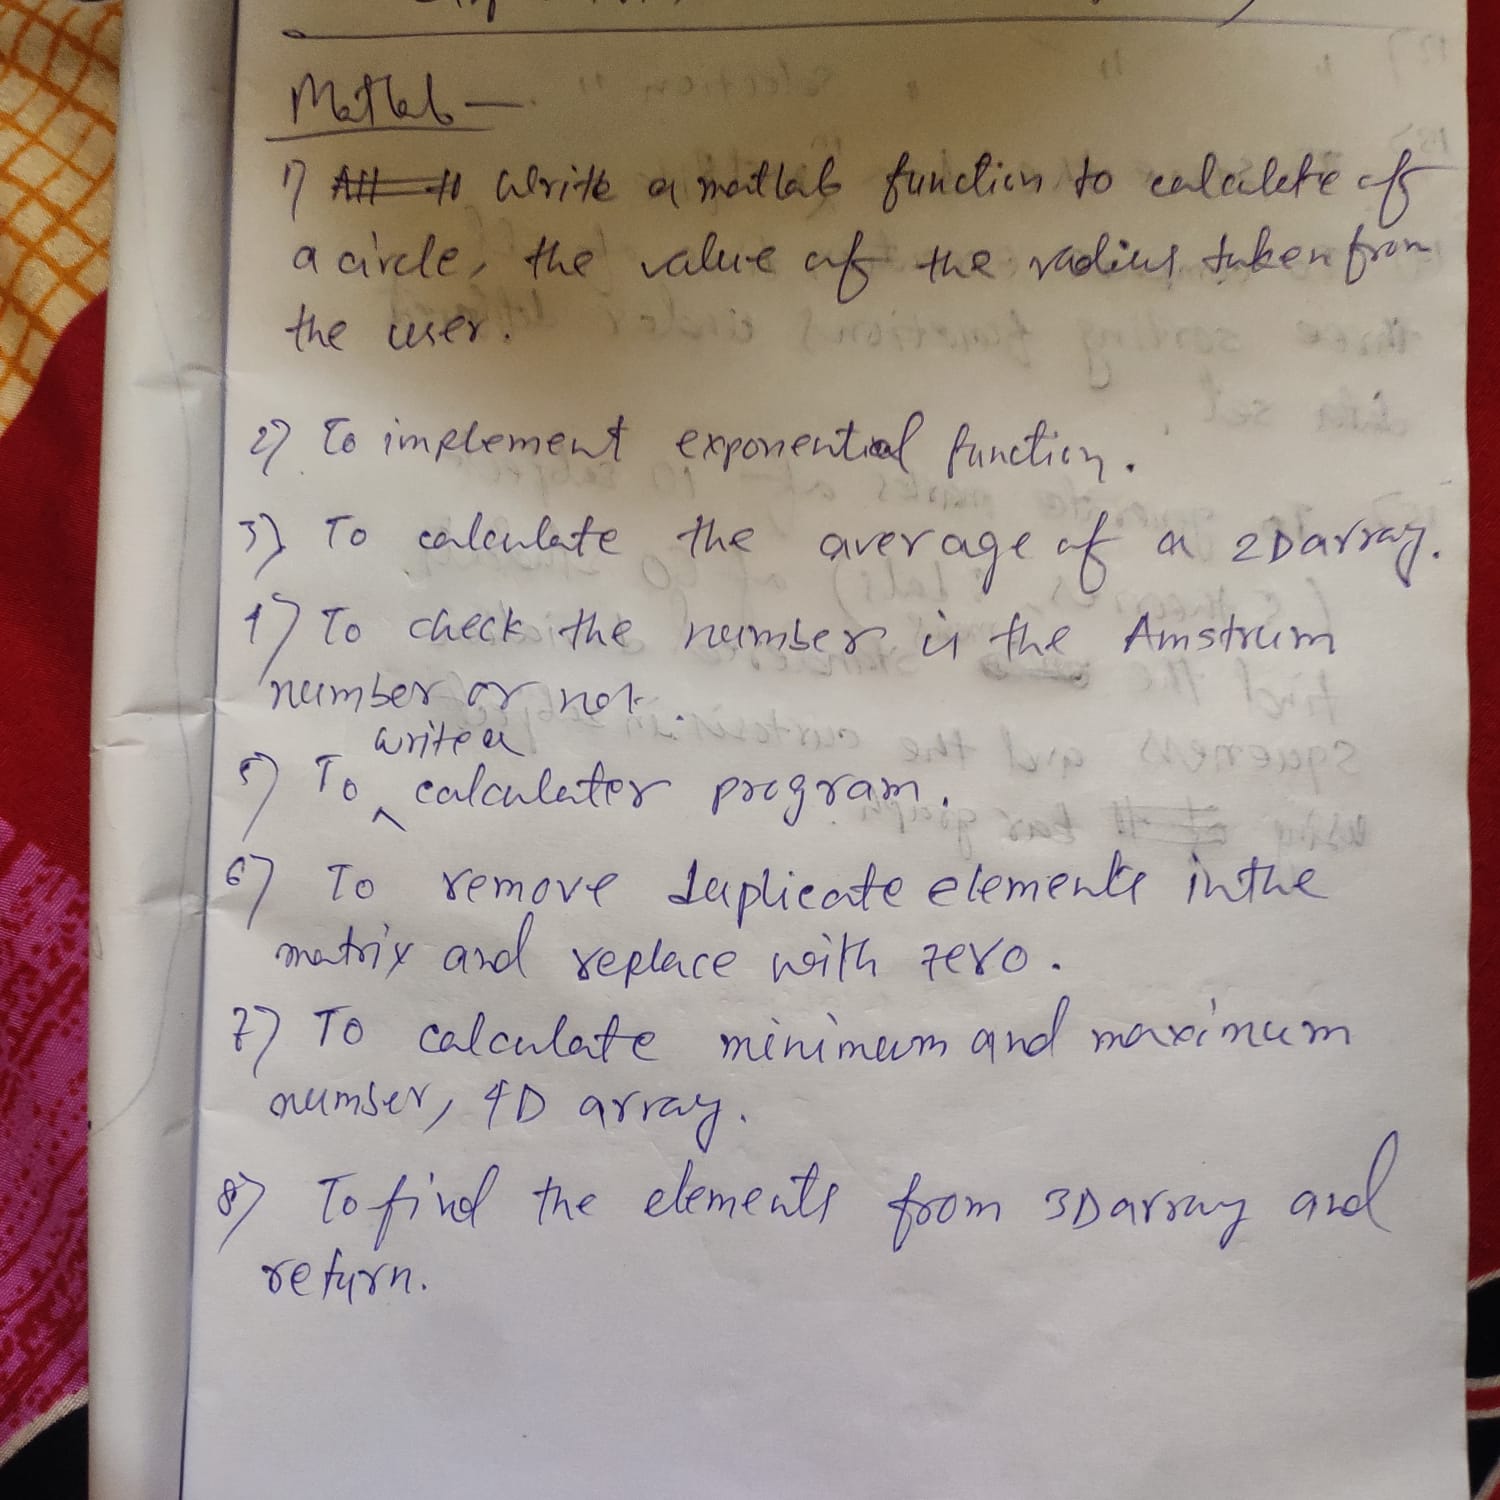 Matlab —
1) Write a matlab function to calculate of
a circle, the value of the radius taken from
the user.
2) To implement exponential function.
3) To calculate the average of a 2D array.
4) To check the number is the Amstrum
number or not.
write a
5) To ^ calculater program.
6) To remove duplicate elements in the
matrix and replace with zero.
7) To calculate minimum and maximum
number, 4D array.
8) To find the elements from 3D array and
return.